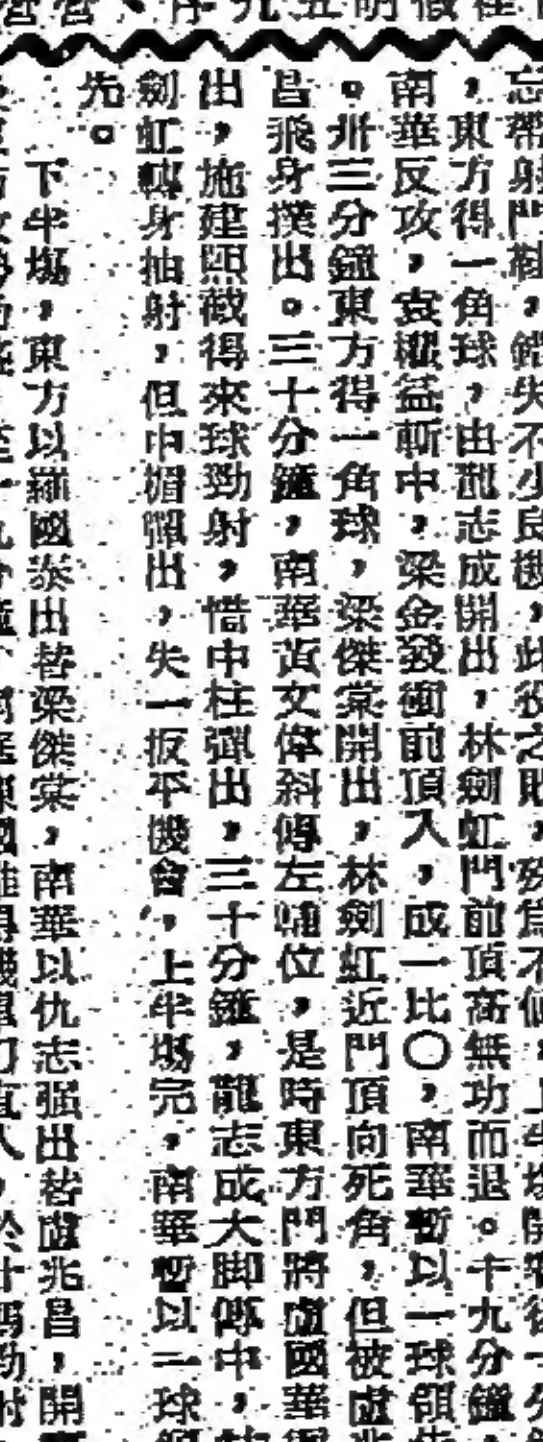 忘帶射門鞋,錯失不少良機,此役之敗,殊為不值,上半場開賽後一分
,東方得一角球,由龍志成開出,林劍虹門前頂高無功而退。十九分鐘,
南華反攻,袁權益斬中,梁金發衝前頂入,成一比〇,南華暫以一球領先
。卅三分鐘東方得一角球,梁傑棠開出,林劍虹近門頂向死角,但被盧兆
昌飛身撲出。三十分鐘,南華黃文偉斜傳左輔位,是時東方門將盧國華
出,施建熙截得來球勁射,惜中柱彈出,三十分鐘,龍志成大脚傳中,林
劍虹轉身抽射,但中楣彈出,失一扳平機會,上半場完,南華暫以一球領
先。
下半場,東方以羅國泰出替梁傑棠,南華以仇志强出替盧兆昌,開